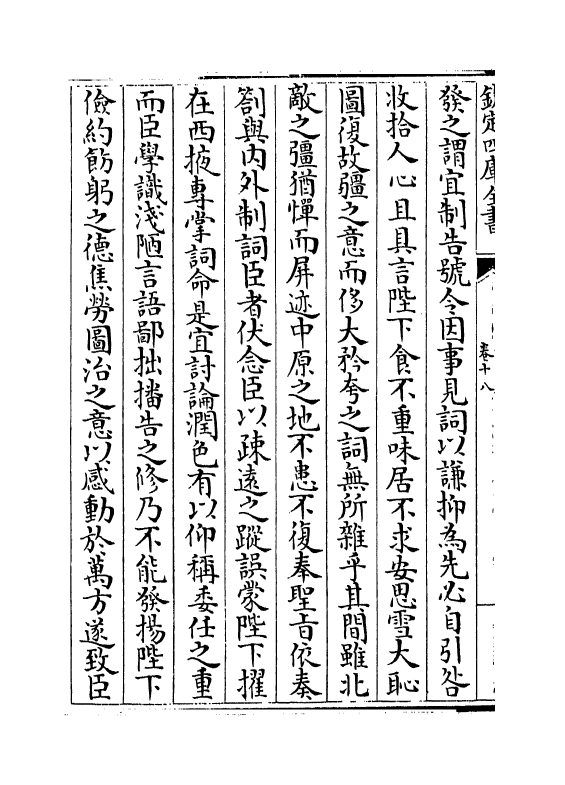 欽定四庫全書
卷十八
發之謂宜制告號令因事見詞以謙抑為先必自引咎
收拾人心且具言陛下食不重味居不求安思雪大恥
圖復故疆之意而侈大矜夸之詞無所雜乎其間雖北
敵之彊猶憚而屏迹中原之地不患不復奉聖旨依奏
劄與内外制詞臣者伏念臣以疎遠之蹤誤蒙陛下擢
在西掖專掌詞命是宜討論潤色有以仰稱委任之重
而臣學識淺陋言語鄙拙播告之修乃不能發揚陛下
儉約飭躬之德焦勞圖治之意以感動於萬方遂致臣